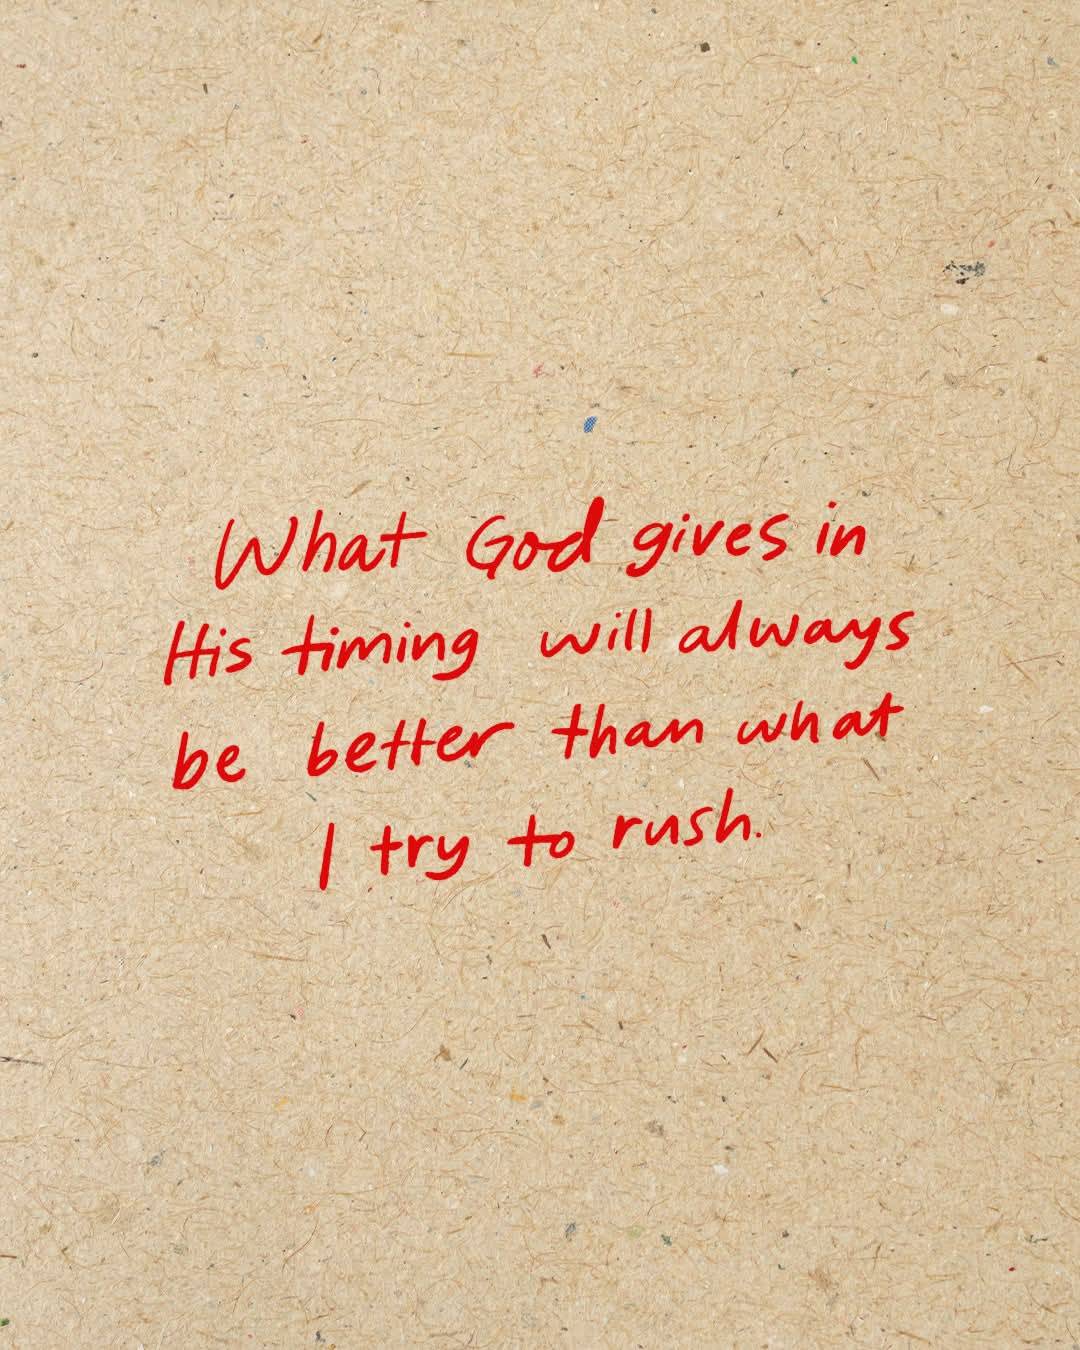 What God gives in
His timing will always
be better than what
I try to rush.